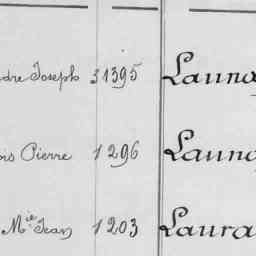 dre Joseph 31395 Launo
ois Pierre 1296 Launo
Mie Jean 1203 Laura